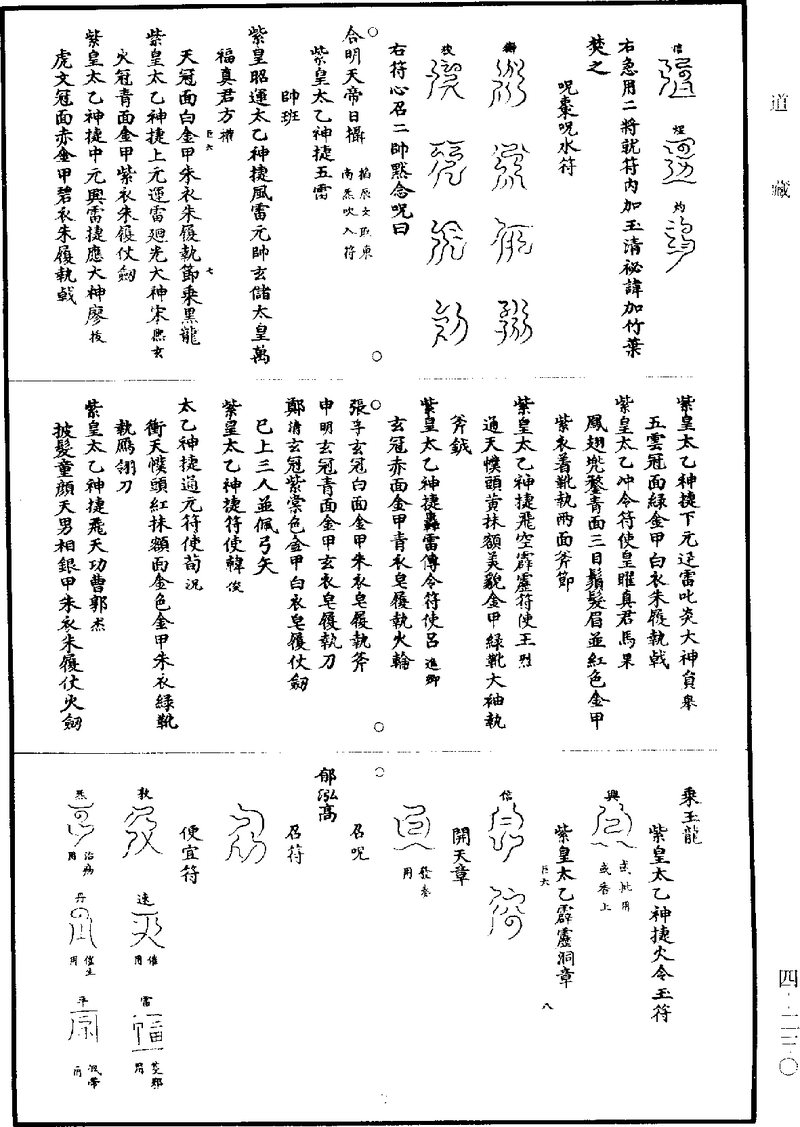 道藏
四·二三〇
信 煌 灼
右急用二將就符内加玉清祕諱加竹葉
焚之
呪棗呪水符
右符心召二帥默念呪曰
合明天帝日攝 掐辰文取東南炁吹入符
紫皇太乙神捷五雷
帥班
紫皇昭運太乙神捷風雷元帥玄儲太皇萬
福真君方 巨六
天冠面白金甲朱衣朱履執節乘黑龍 七
紫皇太乙神捷上元運雷廻光大神宋熙玄
火冠青面金甲紫衣朱履仗劒
紫皇太乙神捷中元興雷捷應大神廖
虎文冠面赤金甲碧衣朱履執戟
紫皇太乙神捷下元逆雷叱炎大神貟
五雲冠面緑金甲白衣朱履執戟
紫皇太乙冲令符使皇曜真君馬杲
鳳翅兜鍪青面三目鬚髮眉並紅色金甲
紫衣着靴執两面斧節
紫皇太乙神捷飛空霹靂符使王烈
通天幞頭黄抹額美貌金甲緑靴大袖執
斧鉞
紫皇太乙神捷轟雷傳令符使吕進卿
玄冠赤面金甲青衣皂履執火輪
張孚玄冠白面金甲朱衣皂履執斧
申明玄冠青面金甲玄衣皂履執刀
鄭清玄冠紫棠色金甲白衣皂履仗劒
已上三人並佩弓矢
紫皇太乙神捷符使韓俊
太乙神捷通元符使荀況
衝天幞頭紅抹額面金色金甲朱衣緑靴
執鴈翎刀
紫皇太乙神捷飛天功曹郭杰
披髮童顔天男相銀甲朱衣朱履仗火劒
乘玉龍
紫皇太乙神捷火令玉符
興 或批用或香上
紫皇太乙霹靂洞章
巨六 八
信
開天章
發奏用
召呪
郁泓高
召符
便宜符
速 催用
雷
炁 治病用
丹 催生用
平